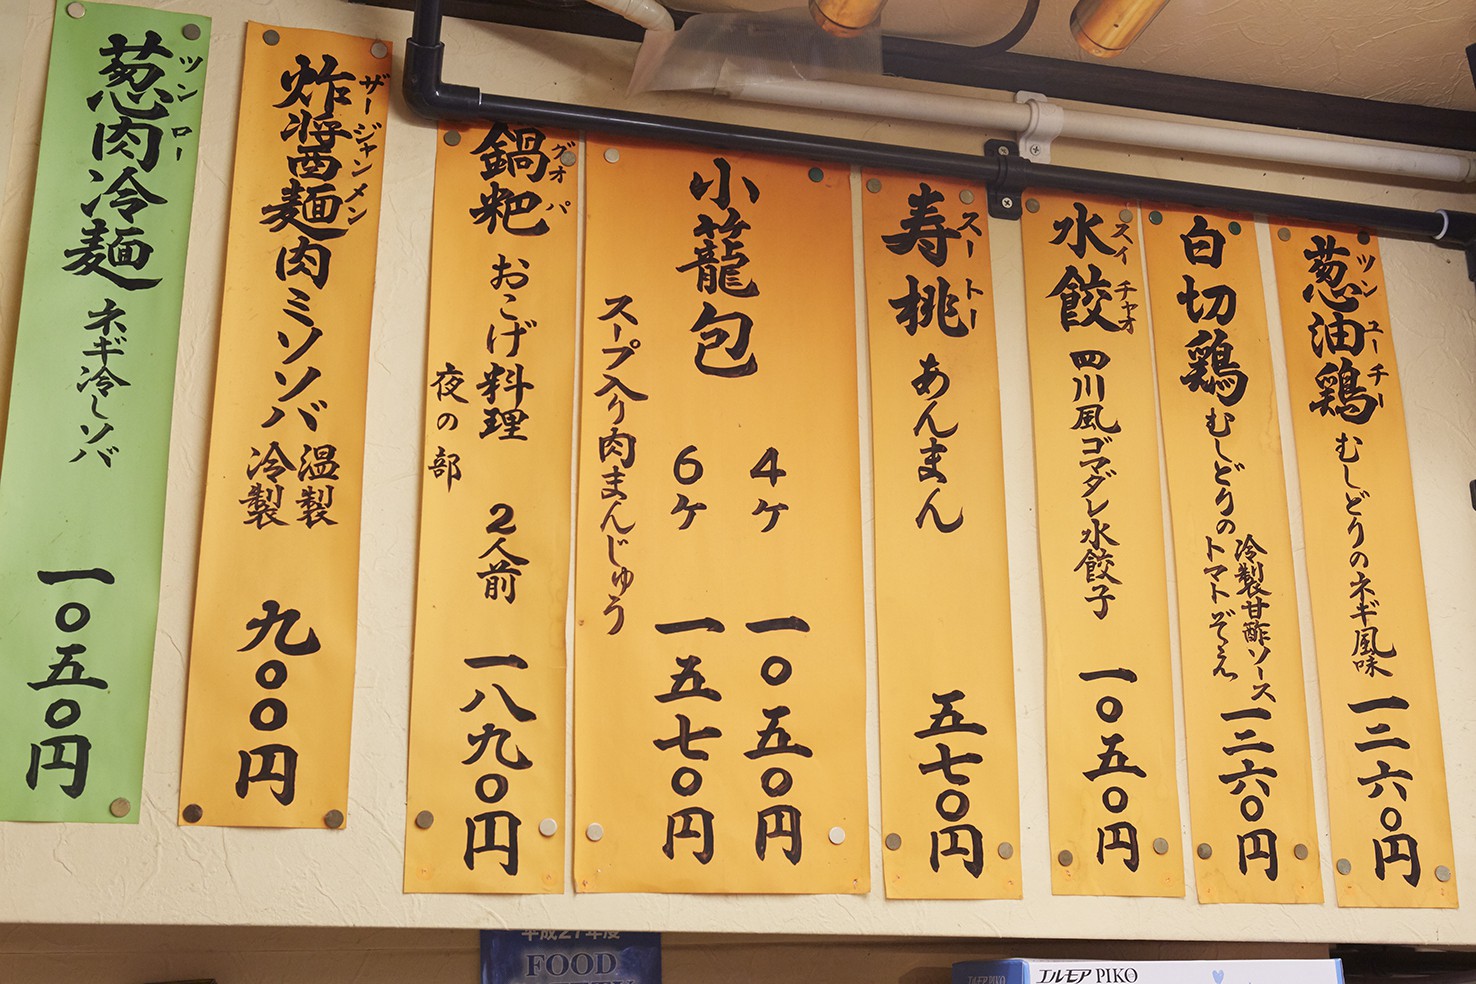 葱油鶏
ツンユーチー
むしどりのネギ風味
一二六〇円
白切鶏
むしどりの
冷製甘酢ソース
トマトぞえ
一二六〇円
水餃
スイチャオ
四川風ゴマダレ水餃子
一〇五〇円
寿桃
スートー
あんまん
五七〇円
小籠包
4ケ
一〇五〇円
6ケ
一五七〇円
スープ入り肉まんじゅう
鍋粑
グオパ
おこげ料理
2人前
夜の部
一八九〇円
炸醤麺
ザージャンメン
肉ミソソバ
温製
冷製
九〇〇円
葱肉冷麺
ツンロー
ネギ冷しソバ
一〇五〇円
平成21年度
FOOD
エルモア PIKO